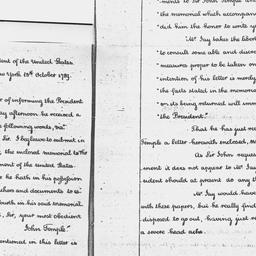 dent of the United States.
New York 13th October 1789.
of informing the President
day afternoon he received a
following words, viz.
Sir I beg leave to submit in
the enclosed memorial to the
ment of the United States.
he hath in his possession
chers and documents to
forth in his said memorial
, Sir, your most obedient
John Temple."
mentioned in this letter is
ments to Sir John Temple and
"the memorial which accompan
"did him the honor to write y
"Mr Jay takes the libert
"to consult some able and discre
"measures proper to be taken on
"intention of his letter is merely
"the facts stated in the memorial
"on its being returned will imme
"the President."
That he has just rece
Temple a letter herewith enclosed, in
As Sir John reques
ment it does not appear to Mr Jay
esident should at present do any th
Mr Jay would have
with these papers, but he really find
disposed to go out, having just re
a severe head ache.